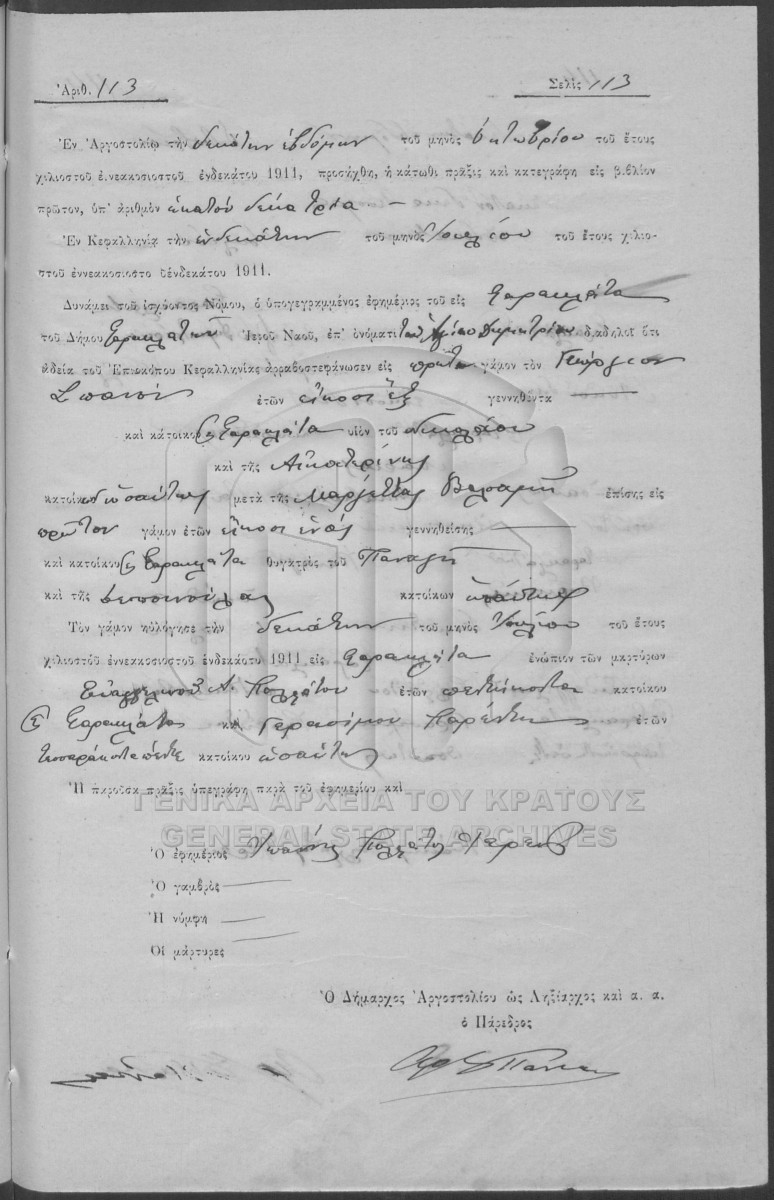 Ἀριθ. 113 Σελὶς 113
Ἐν Ἀργοστολίῳ τὴν δεκάτην ἑβδόμην τοῦ μηνὸς Ὀκτωβρίου τοῦ ἔτους
χιλιοστοῦ ἐνεακοσιοστοῦ ἑνδεκάτου 1911, προσήχθη, ἡ κάτωθι πρᾶξις καὶ κατεγράφη εἰς βιβλίον
πρῶτον, ὑπ' ἀριθμὸν ἑκατὸν δέκα τρία.—
Ἐν Κεφαλληνίᾳ τὴν ἑνδεκάτην τοῦ μηνὸς Ἰουλίου τοῦ ἔτους χιλιο-
στοῦ ἐννεακοσιοστο ῦἑνδεκάτου 1911.
Δυνάμει τοῦ ἰσχύοντος Νόμου, ὁ ὑπογεγραμμένος ἐφημέριος τοῦ εἰς Φαρακλάτα
τοῦ Δήμου Φαρακλάτων Ἱεροῦ Ναοῦ, ἐπ' ὀνόματι τοῦ Ἁγίου Δημητρίου διαδηλοῖ ὅτι
ἀδείᾳ τοῦ Ἐπισκόπου Κεφαλληνίας ἀρραβοστεφάνωσεν εἰς πρῶτον γάμον τὸν Γεώργιον
ἐτῶν εἴκοσι ἓξ γεννηθέντα
καὶ κάτοικον Φαρακλάτα υἱὸν τοῦ Νικολάου
καὶ τῆς Αἰκατερίνης
κατοίκων ὡσαύτως μετὰ τῆς Μαριέττας Βαλσαμῆ ἐπίσης εἰς
πρῶτον γάμον ἐτῶν εἴκοσι ἑνὸς γεννηθείσης
καὶ κατοίκου Φαρακλάτα θυγατρὸς τοῦ Παναγῆ
καὶ τῆς Δεσποινούλας κατοίκων ὡσαύτως
Τὸν γάμον ηὐλόγησε τὴν δεκάτην τοῦ μηνὸς Ἰουλίου τοῦ ἔτους
χιλιοστοῦ ἐννεακοσιοστοῦ ἑνδεκάτου 1911 εἰς Φαρακλάτα ἐνώπιον τῶν μαρτύρων
Εὐαγγελινοῦ Α. Κολλάτου ἐτῶν πεντήκοντα κατοίκου
Φαρακλάτα καὶ Γερασίμου Παρέντη ἐτῶν
τεσσαράκοντα πέντε κατοίκου ὡσαύτως
Ἡ παροῦσα πρᾶξις ὑπεγράφη παρὰ τοῦ ἐφημερίου καὶ
ΓΕΝΙΚΑ ΑΡΧΕΙΑ ΤΟΥ ΚΡΑΤΟΥΣ
GENERAL STATE ARCHIVES
Ὁ ἐφημέριος Κολλάτος Ἱερεὺς
Ὁ γαμβρὸς
Ἡ νύμφη
Οἱ μάρτυρες
Ὁ Δήμαρχος Ἀργοστολίου ὡς Ληξίαρχος καὶ α. α.
ὁ Πάρεδρος